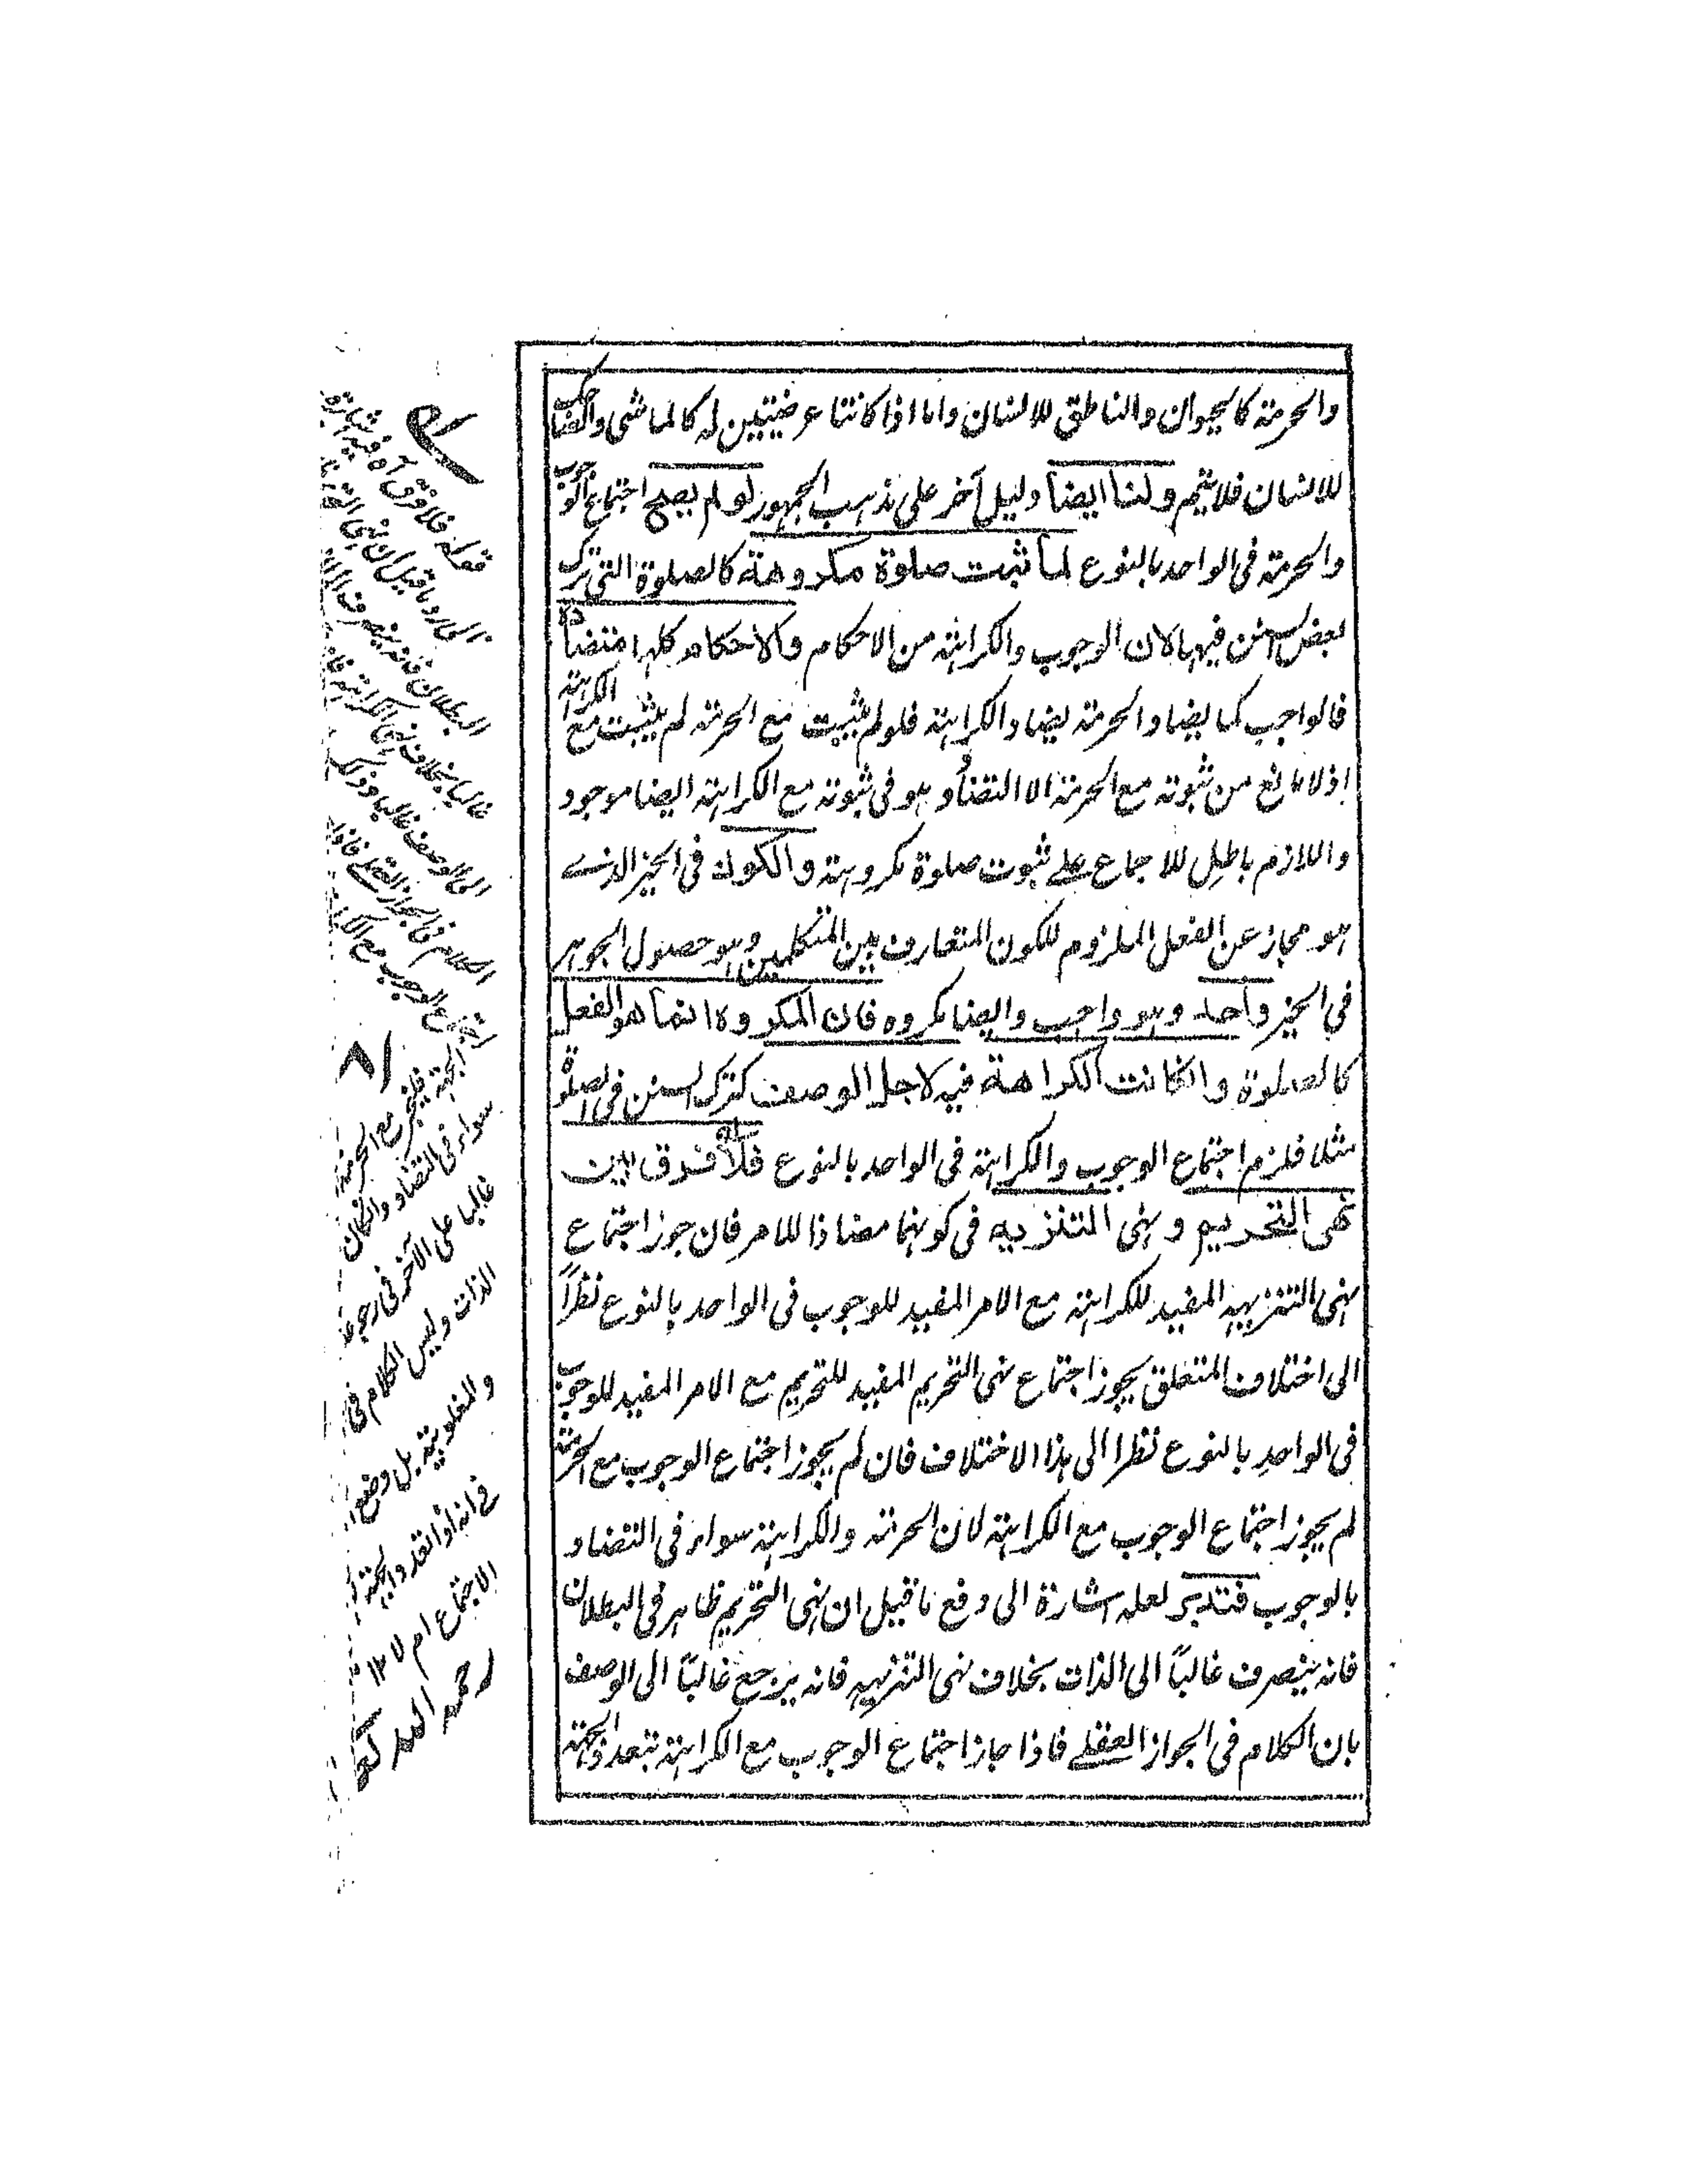 والحرمة كالحيوان والناطق للانسان واما اذا كانتا عرضيتين له كالماشى والضاحك
للانسان فلا يتم ولنا ايضا دليل آخر على مذهب الجمهور لو لم يصح اجتماع الوجوب
والحرمة فى الواحد بالنوع لما ثبت صلوة مكروهة كالصلوة التى ترك
بعض السنن فيها لان الوجوب والكراهة من الاحكام والاحكام كلها متضادة
فالواجب كما يضاد الحرمة يضاد الكراهة فلو لم يثبت مع الحرمة لم يثبت مع الكراهة
اذ لا مانع من ثبوته مع الحرمة الا التضاد وهو فى ثبوته مع الكراهة ايضا موجود
واللازم باطل للاجماع على ثبوت صلوة مكروهة والكون فى الحيز الذے
هو مجاز عن الفعل الملزوم للكون المتعارف بين المتكلمين وهو حصول الجوهر
فى الحيز واحد وهو واجب وايضا مكروه فان المكروه انما هو الفعل
كالصلوة وانكانت الكراهة فيه لاجل الوصف كترك السنن فى الصلوة
مثلا فلزم اجتماع الوجوب والكراهة فى الواحد بالنوع فلا فرق بين
نهى التحريم ونهى التنزيه فى كونهما مضادا للامر فان جوز اجتماع
نهى التنزيه المفيد للكراهة مع الامر المفيد للوجوب فى الواحد بالنوع نظراً
الى اختلاف المتعلق يجوز اجتماع نهى التحريم المفيد للتحريم مع الامر المفيد للوجوب
فى الواحد بالنوع نظرا الى هذا الاختلاف فان لم يجوز اجتماع الوجوب مع الحرمة
لم يجوز اجتماع الوجوب مع الكراهة لان الحرمة والكراهة سواء فى التضاد
بالوجوب فتدبر لعله اشارة الى دفع ما قيل ان نهى التحريم ظاهر فى البطلان
فانه ينصرف غالباً الى الذات بخلاف نهى التنزيه فانه يرجع غالباً الى الوصف
بان الكلام فى الجواز العقلے فاذا جاز اجتماع الوجوب مع الكراهة بتعدد الجهة
قوله فلا فرق آه فيه اشارة
الى رد ما قيل ان نهى
البطلان فانه ينصرف
غالبا بخلاف نهى الكراهة فانه
الى الوصف غالبا وذلك
الكلام فى الجواز العقلے فاذا
اجتماع الوجوب مع الكراهة
الجهة فليجز مع الحرمة
سواء فى التضاد وانكان
غالبا على الآخر فى رجوعه
الذات وليس الكلام فى
والمغلوبية بل وضع
فى انه اذا تعدد الجهة
الاجتماع ام لا ١٢
رحمه الله